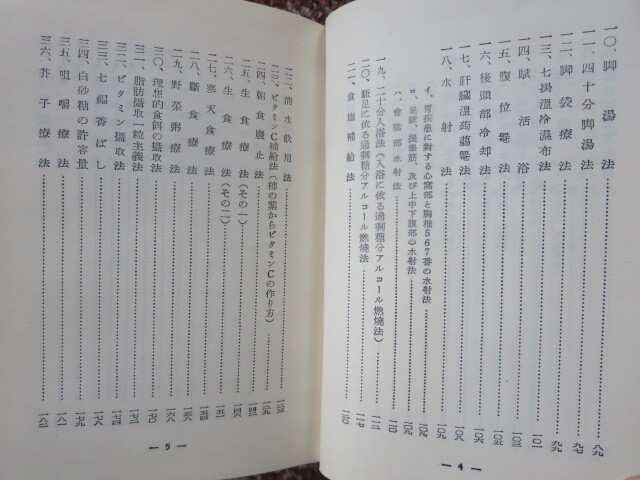 一〇、脚湯法……八九
一一、四十分脚湯法……九九
一二、脚袋療法……九九
一三、七掛温冷温布法……一〇一
一四、賦活浴……一〇二
一五、腹位罨法……一〇五
一六、後頭部冷却法……一〇六
一七、肝臓温蒟蒻罨法……一〇八
一八、水射法……一〇九
イ、胃疾患に対する心窩部と胸椎567番の水射法
ハ、会陰部水射法……一一〇
一九、二十分入浴法(入浴に依る過剰糖分アルコール燃焼法)
二〇、駈足に依る過剰糖分アルコール燃焼法……一一七
二一、食塩補給法……一二〇
— 4 —
二二、清水飲用法
二三、ビタミンC補給法(柿の葉からビタミンCの作り方)
二四、朝食廃止法
二五、生食療法(その一)
二六、生食療法(その二)
二七、寒天食療法
二八、断食療法
二九、野菜粥療法……一六八
三〇、理想的食餌の摂取法……一七〇
三一、脂肪摂取一粒主義法
三二、ビタミン摂取法……一七四
三三、七福香ばし
三四、白砂糖の許容量……一七九
三五、咀嚼療法……一八一
三六、芥子療法……一八三
— 5 —